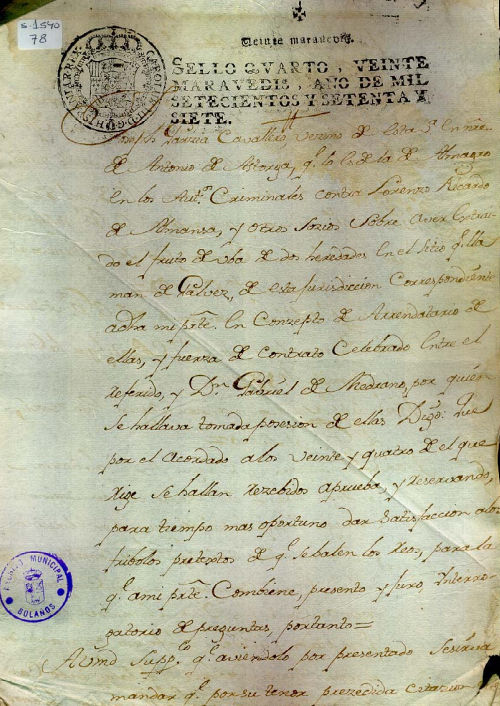 S. 1540
78
Veinte maravedis.
SELLO QVARTO, VEINTE
MARAVEDIS, AÑO DE MIL
SETECIENTOS Y SETENTA Y
SIETE.
Joseph Garzia Cavallero, Vezino de esta Vª en nre
de Antonio de Astorga, qº lo es de la de Almagro
en los Autˢ Criminales contra Lorenzo Ricardo
de Almansa, y otros sozios sobre aver extrai
do el fruto de uba de dos heredades en el sitio qº lla
man de Galvez, de esta jurisdiccion correspondiente
adha mi prte. en Conzepto de Arrendatario de
ellas, y fuerza de contrato celebrado entre el
referido, y Dn Gabriel de Medrano, por quien
se hallava tomada posesion de ellas Digo: Que
por el Acordado a los veinte y quatro de el que
rige se hallan rezebidos aprueba, y reservando,
para tiempo mas oportuno dar satisfaccion a los
fribolos pretextos de qº se balen los reos, para la
qº ami prte. Combiene, presento y juro Interro
gatorio de preguntas, por tanto=
A Vmd Suppco qº aviendolo por presentado se sirva
mandar qº por su tenor prezedida citazion
ARCHIVO MUNICIPAL
BOLAÑOS